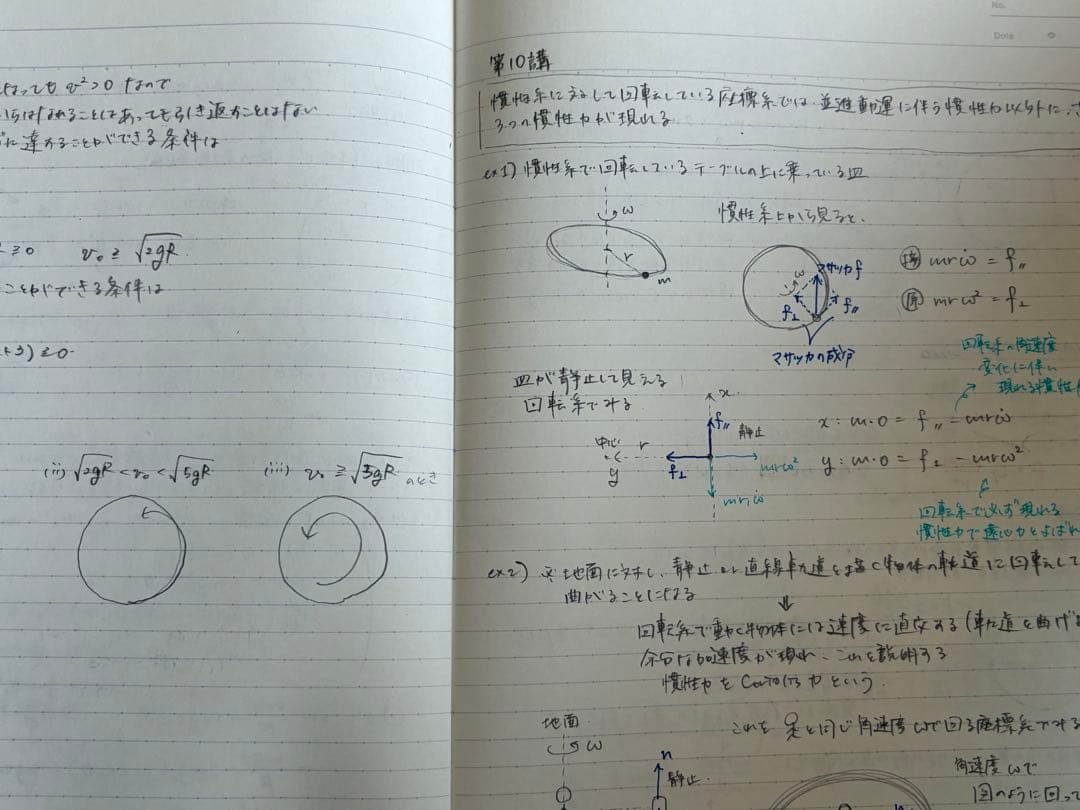 なっても v²>0 なので
はなれることはあっても引き返すことはない
に達することができる条件は
≧0 v₀ ≧ √2gR
ことができる条件は
+3) ≧0.
(ii) √2gR < v₀ < √5gR
(iii) v₀ ≧ √5gR のとき
No.
Date
第10講
慣性系に対して回転している座標系では、並進動運に伴う慣性力以外に、
3つの慣性力が現れる
ex1) 慣性系で回転しているテーブルの上に乗っている皿
ω
r
m
慣性系上から見ると、
ω
マサツカf
f⊥
f∥
マサツ力の成分
接 mrω̇ = f∥
mrω² = f⊥
回転系の角速度
変化に伴い
現れる慣性
皿が静止して見える
回転系でみる
x
f∥
静止
中心
r
y
f⊥
mrω²
mrω̇
x : m・0 = f∥ - mrω̇
y : m・0 = f⊥ - mrω²
回転系で必ず現れる
慣性力で遠心力とよばれ
ex2) ※ 地面に対し、静止 or 直線軌道を描く物体の軌道に回転して
曲がることになる
⇓
回転系で動く物体には速度に直交する(軌道を曲げ
余分な加速度が現れ、これを説明する
慣性力を Coriolis 力という.
地面
ω
n
静止.
これを 星と同じ角速度ωで回る座標系でみる
角速度ωで
図のように回って